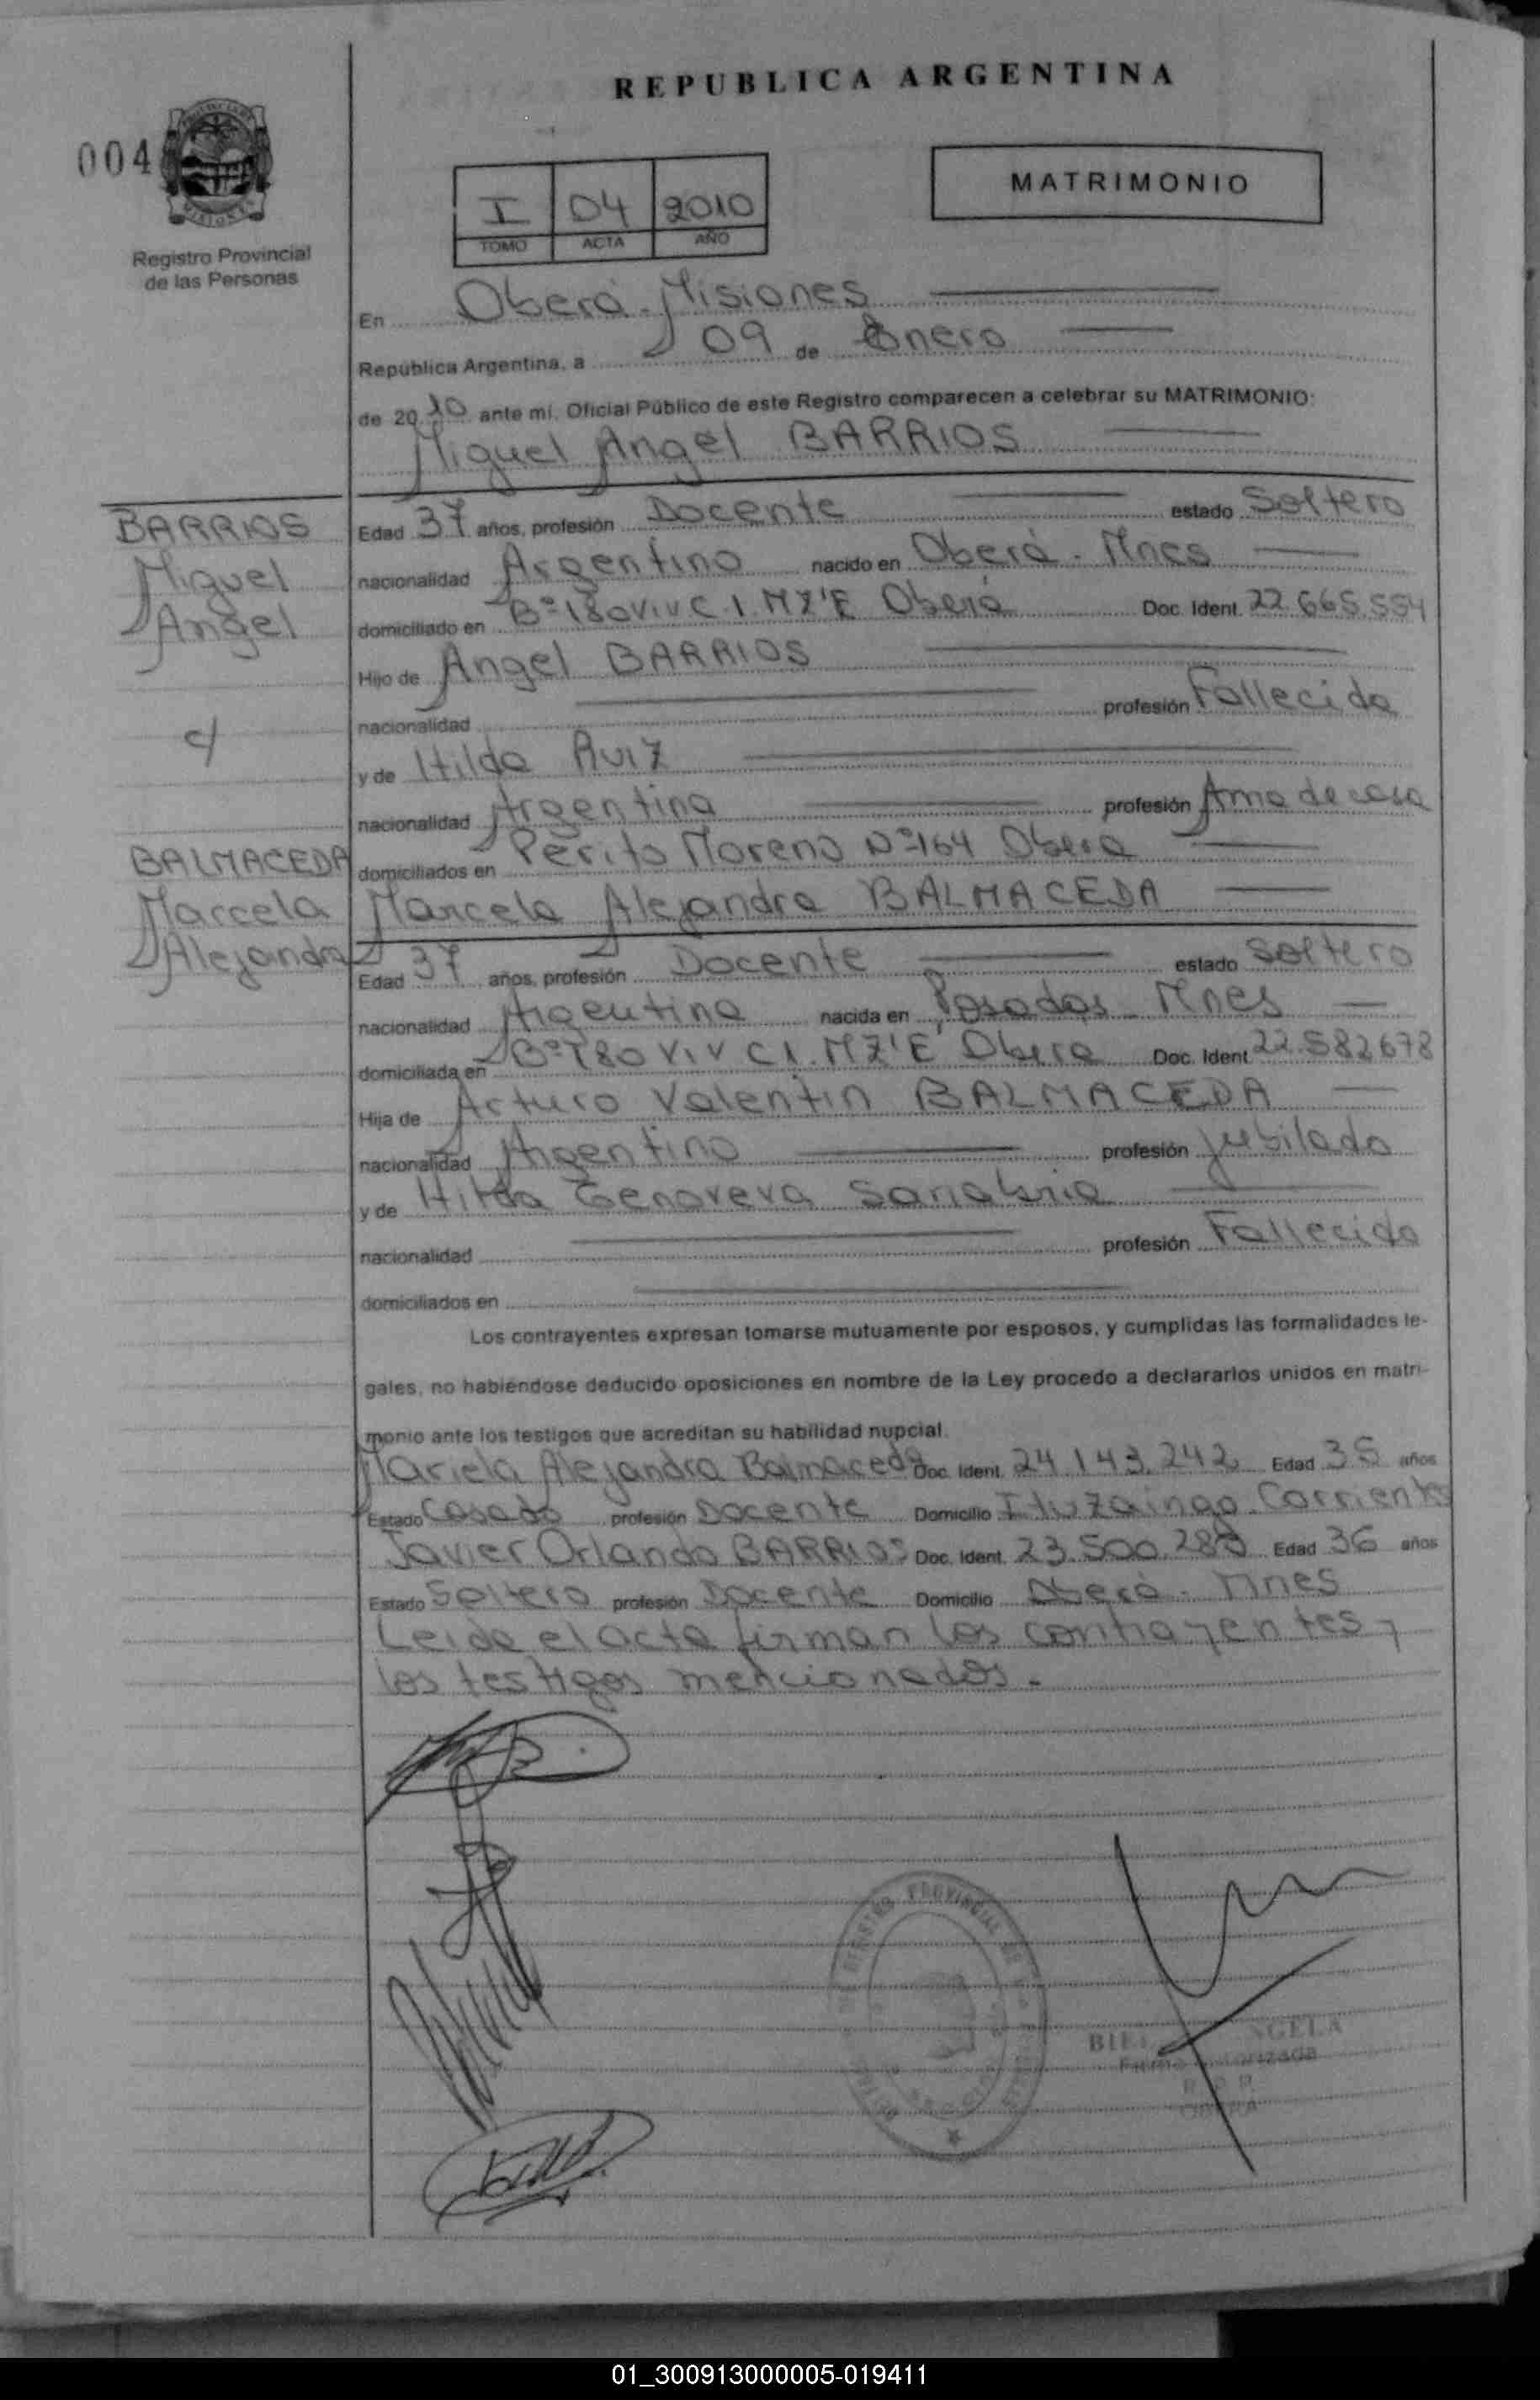 REPUBLICA ARGENTINA
004
MATRIMONIO
I 04 2010
TOMO ACTA AÑO
Registro Provincial
de las Personas
En Oberá - Misiones
República Argentina, a 09 de Enero
de 2010 ante mí, Oficial Público de este Registro comparecen a celebrar su MATRIMONIO:
Miguel Angel BARRIOS
BARRIOS
Miguel
Angel
c/
BALMACEDA
Marcela
Alejandra
Edad 37 años, profesión Docente estado Soltero
nacionalidad Argentino nacido en Oberá - Mnes
domiciliado en Bº 180 Viv C. 1. MZ'E Oberá Doc. Ident. 22.665.554
Hijo de Angel BARRIOS
nacionalidad profesión Fallecido
y de Hilda Ruiz
nacionalidad Argentina profesión Ama de casa
domiciliados en Perito Moreno Nº 164 Oberá
Marcela Alejandra BALMACEDA
Edad 37 años, profesión Docente estado Soltero
nacionalidad Argentina nacida en Posadas Mnes
domiciliada en Bº 180 Viv C 1. MZ'E Oberá Doc. Ident. 22.582678
Hija de Arturo Valentin BALMACEDA
nacionalidad Argentino profesión Jubilado
y de Hilda Genoveva Sanabria
nacionalidad profesión Fallecida
domiciliados en
Los contrayentes expresan tomarse mutuamente por esposos, y cumplidas las formalidades le-
gales, no habiéndose deducido oposiciones en nombre de la Ley procedo a declararlos unidos en matri-
monio ante los testigos que acreditan su habilidad nupcial.
Mariela Alejandra Balmaceda Doc. Ident. 24.143.242 Edad 35 años
Estado Casado profesión Docente Domicilio Ituzaingo - Corrientes
Javier Orlando BARRIOS Doc. Ident. 23.500.280 Edad 36 años
Estado Soltero profesión Docente Domicilio Oberá - Mnes
Leida el acta firman los contrayentes y
los testigos mencionados.
REGISTRO PROVINCIAL DE
NGELA
Firma autorizada
OBERA
01_300913000005-019411